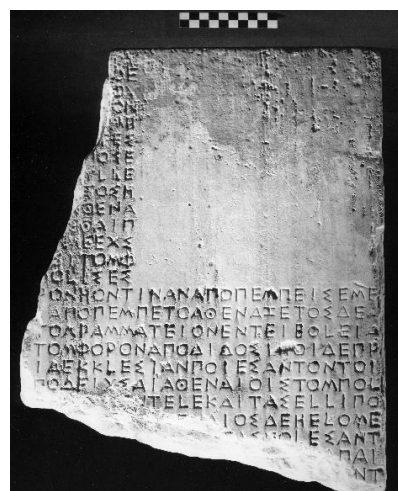 ΕΝΑ
ΑΙΠ
ΕΧΣ
ΤΟΜ
ΣΕΣ
ΟΝΗΟΝΤΙΝΑΝΑΠΟΠΕΜΠΕΙΣΕΜΕ
ΑΠΟΠΕΜΠΕΤΟΑΘΕΝΑΖΕΤΟΣΔΕ
ΤΟΓΡΑΜΜΑΤΕΙΟΝΕΝΤΕΙΒΟΛΕΙΑ
ΤΟΜΦΟΡΟΝΑΠΟΔΙΔΟΣΙΗΟΙΔΕΠΡ
ΙΑΕΚΚΛΕΣΙΑΝΠΟΙΕΣΑΝΤΟΝΤΟΙ
ΠΟΔΕΙΧΣΑΙΑΘΕΝΑΙΟΙΣΤΟΜΠΟΛ
ΝΤΕΛΕΚΑΙΤΑΣΕΛΛΙΠΟ
ΙΟΣΔΕΗΕΛΟΜΕ
ΟΙΕΣΑΝΤ
ΠΑΙ
ΝΤ